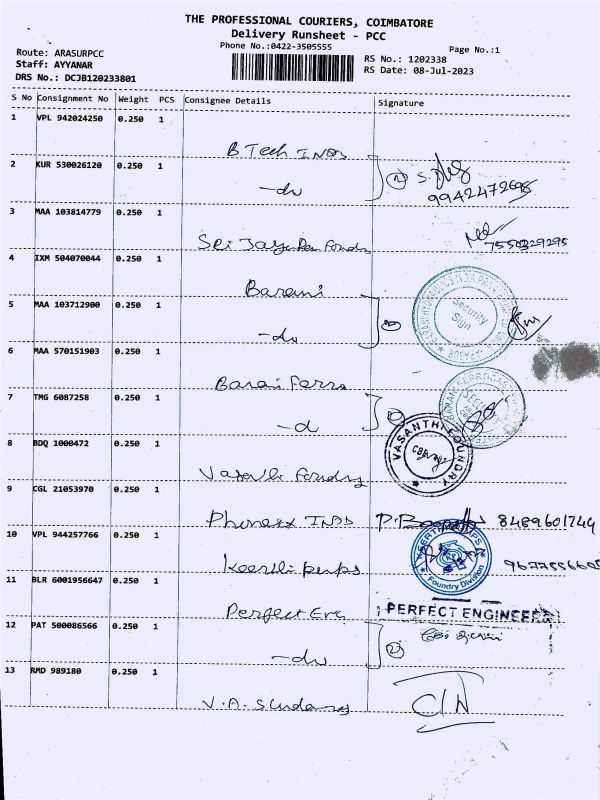 THE PROFESSIONAL COURIERS, COIMBATORE
Delivery Runsheet - PCC
Phone No.:0422-3505555
Page No.:1
Route: ARASURPCC
Staff: AYYANAR
DRS No.: DCJB120233801
RS No.: 1202338
RS Date: 08-Jul-2023
S No Consignment No Weight PCS Consignee Details Signature
1 VPL 942024250 0.250 1
B Tech INDS
2 KUR 530026120 0.250 1
-do
9942472695
3 MAA 103814779 0.250 1
7550329295
4 IXM 504070044 0.250 1
Barani
Security
Sign
5 MAA 103712900 0.250 1
-do
6 MAA 570151903 0.250 1
Barani Ferro
7 TMG 6087258 0.250 1
-do
VASANTHI FOUNDRY
8 BDQ 1000472 0.250 1
9 CGL 21053970 0.250 1
8489601744
10 VPL 944257766 0.250 1
Keerthi pumps
Foundry Division
11 BLR 6001956647 0.250 1
Perfect Eng
PERFECT ENGINEERS
12 PAT 500086566 0.250 1
-do
13 RMD 989180 0.250 1